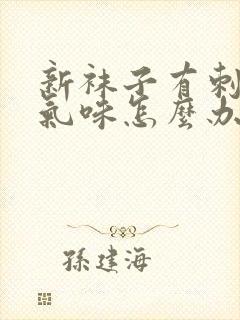 新袜子有刺
氣味怎麼办
孫建海